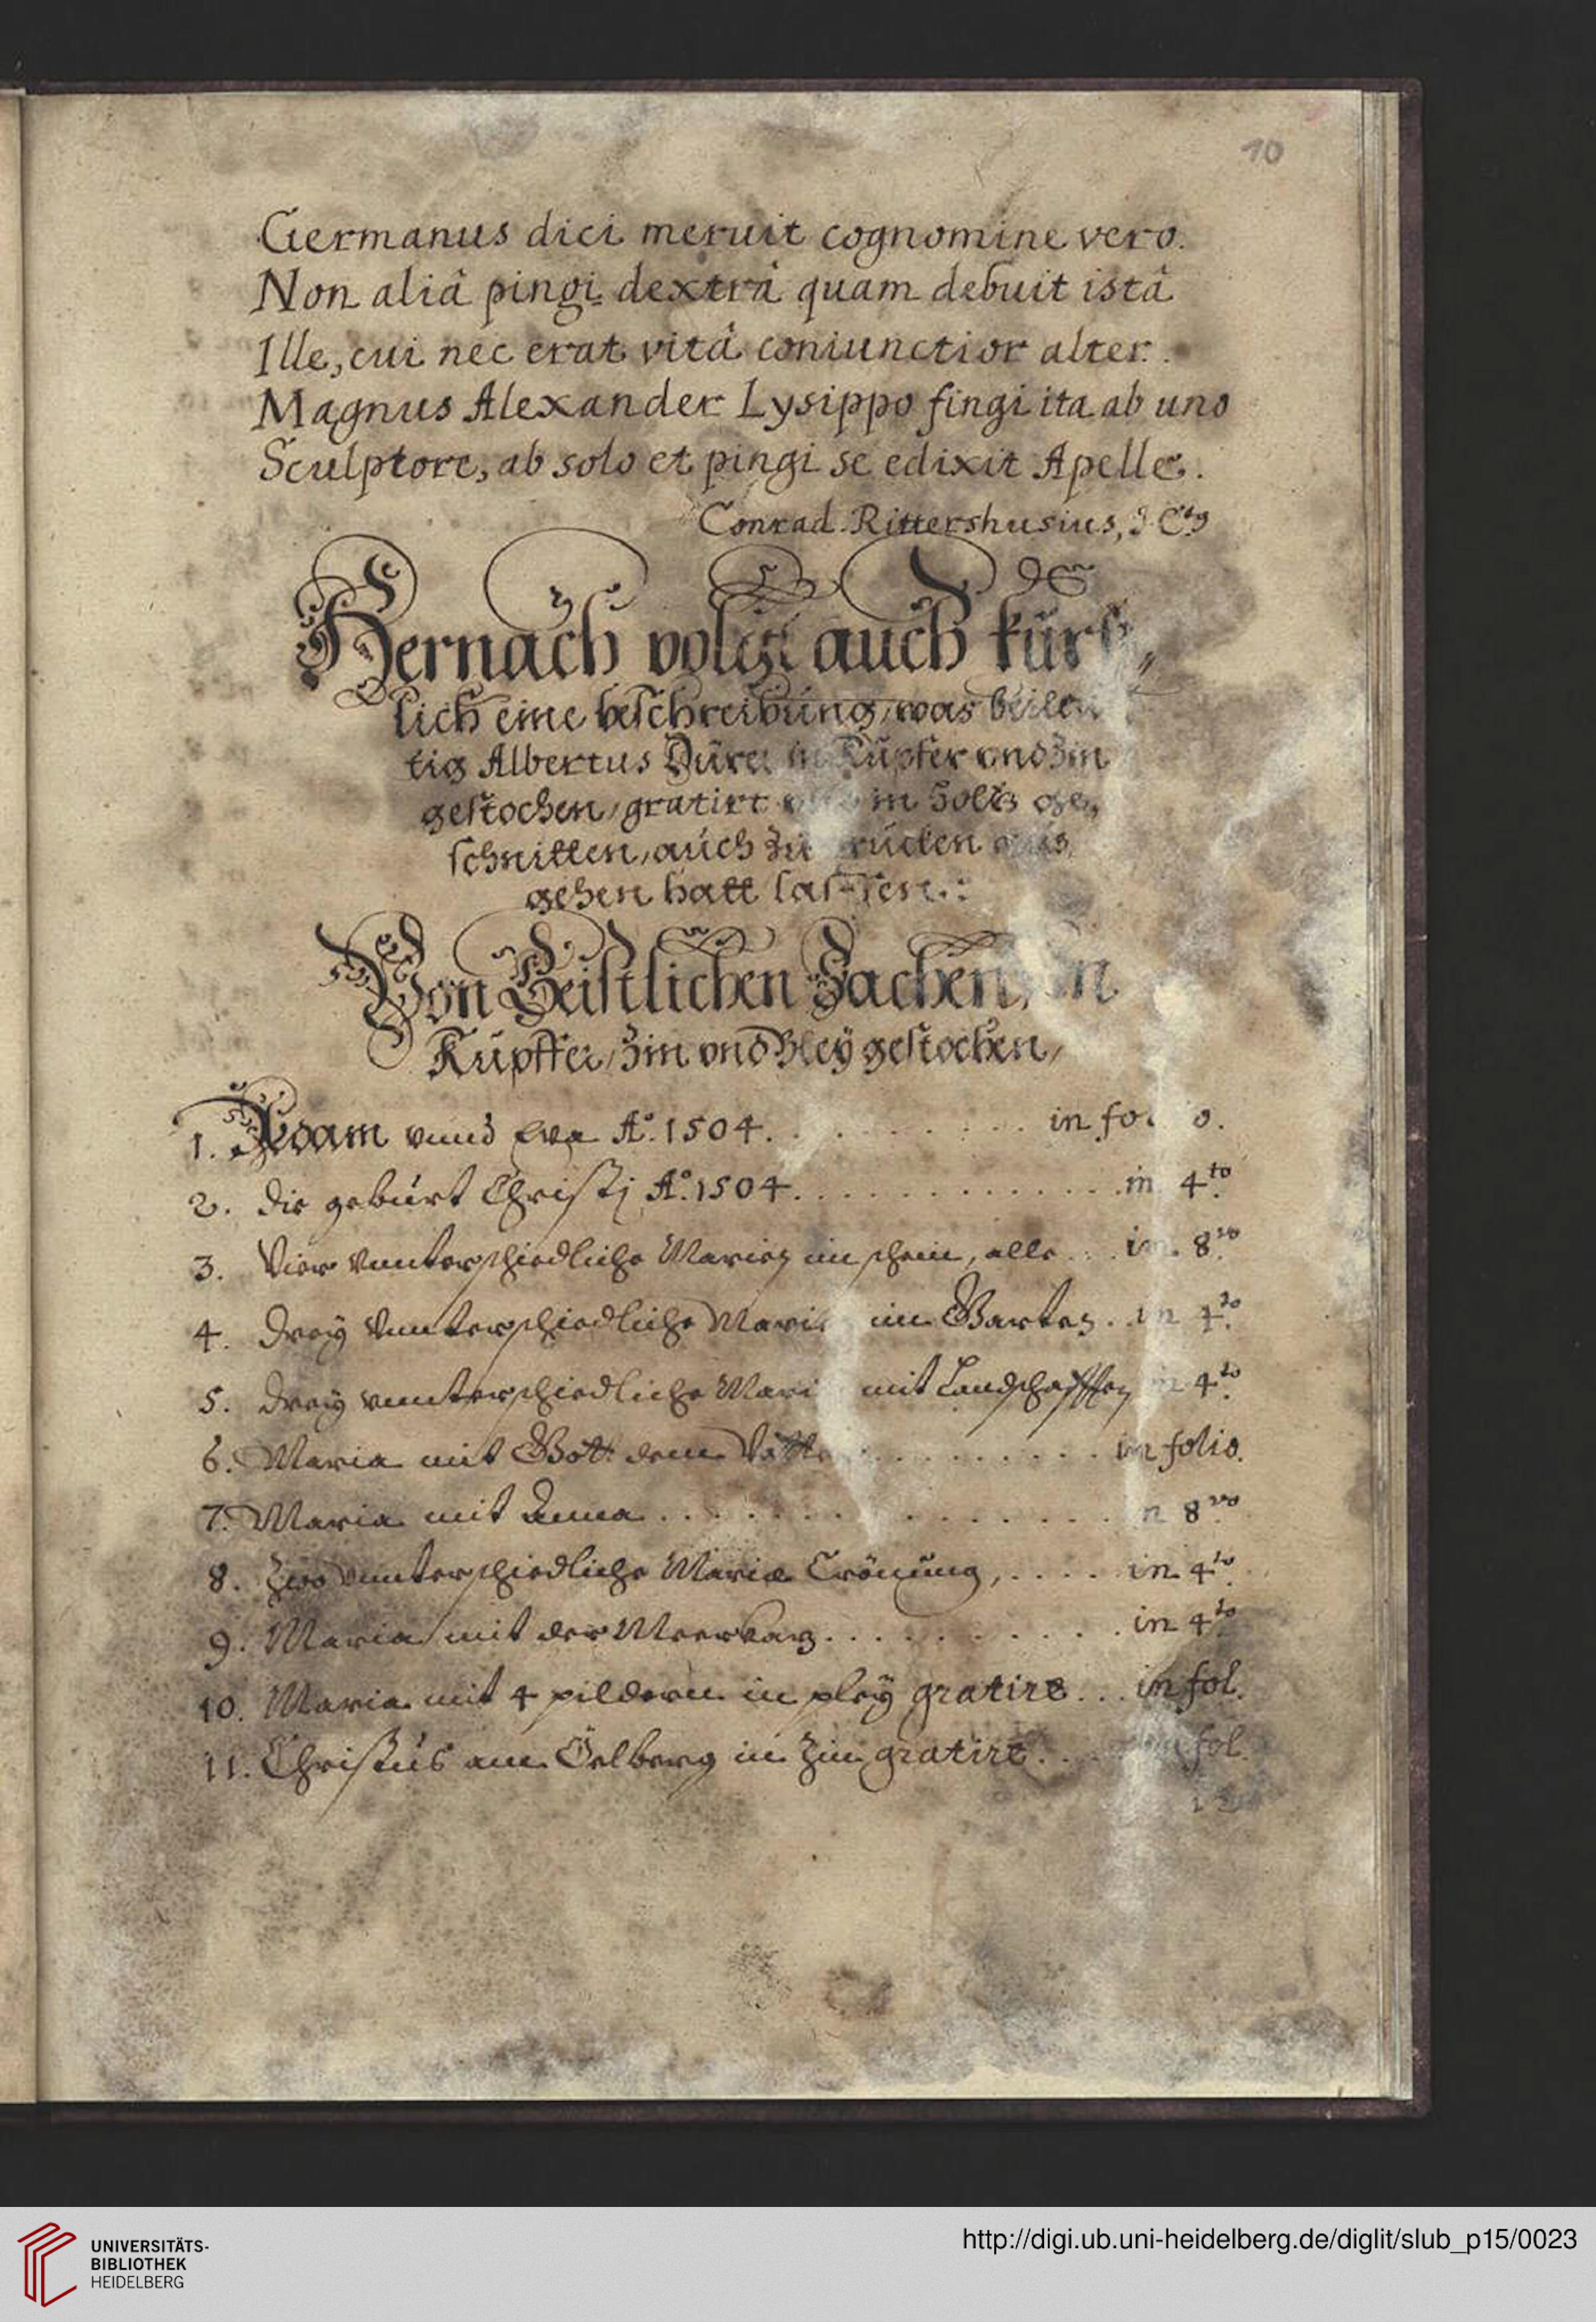 10
Germanus dici meruit cognomine vero.
Non aliâ pingi dextrâ quam debuit istâ
Ille, cui nec erat vitâ coniunctior alter.
Magnus Alexander Lysippo fingi ita ab uno
Sculptore, ab solo et pingi se edixit Apelle.
Conrad. Rittershusius, J. Ctg
Hernach volgt auch kürtz,,
lich eine beschreibung, was
tig Albertus Dürer in Kupfer vnd Zin
gestochen, gratirt in Holtz ge,
schnitten, auch zu aus,
gehen hatt lassen.
Von Geistlichen Sachen, In
Kupffer, Zin vnd Bley gestochen,
1. Adam vnnd Eva Aº. 1504. in folio.
2. Die geburt Christj Aº. 1504. in 4to.
3. Vier vnnterschiedliche Marien im schein, alle in 8vo.
4. Drey vnnterschiedliche Mari im Garten. in 4to.
5. Drey vnnterschiedliche Mari mit Landschafften in 4to.
6. Maria mit Gott dem Vatter in folio.
7. Maria mit Anna in 8vo.
8. Zwo vnnterschiedliche Mariæ Crönung, in 4to.
9. Maria mit der Meerkatz in 4to.
10. Maria mit 4 pildern in pley gratirt in fol.
11. Christus am Ölberg in Zin gratirt. fol.
UNIVERSITÄTS-
BIBLIOTHEK
HEIDELBERG
http://digi.ub.uni-heidelberg.de/diglit/slub_p15/0023